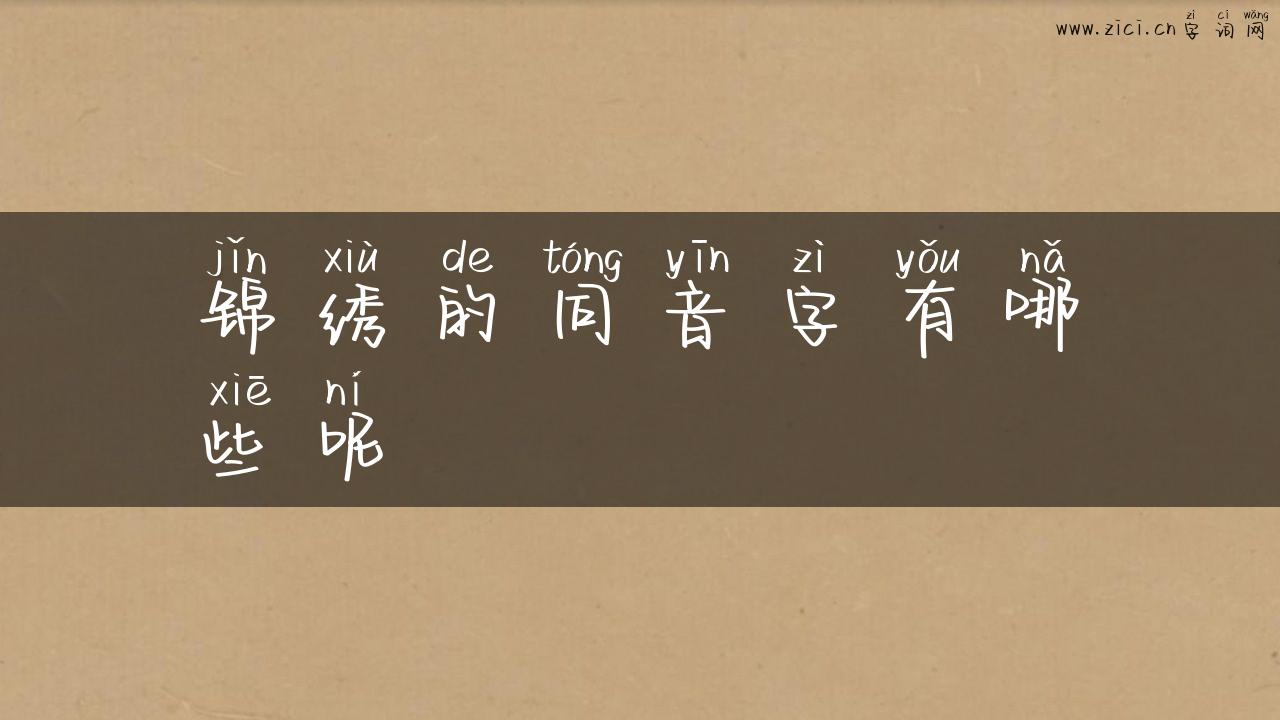 zì cí wǎng
www.zici.cn 字 词 网
jǐn xiù de tóng yīn zì yǒu nǎ
锦 绣 的 同 音 字 有 哪
xiē ní
些 呢